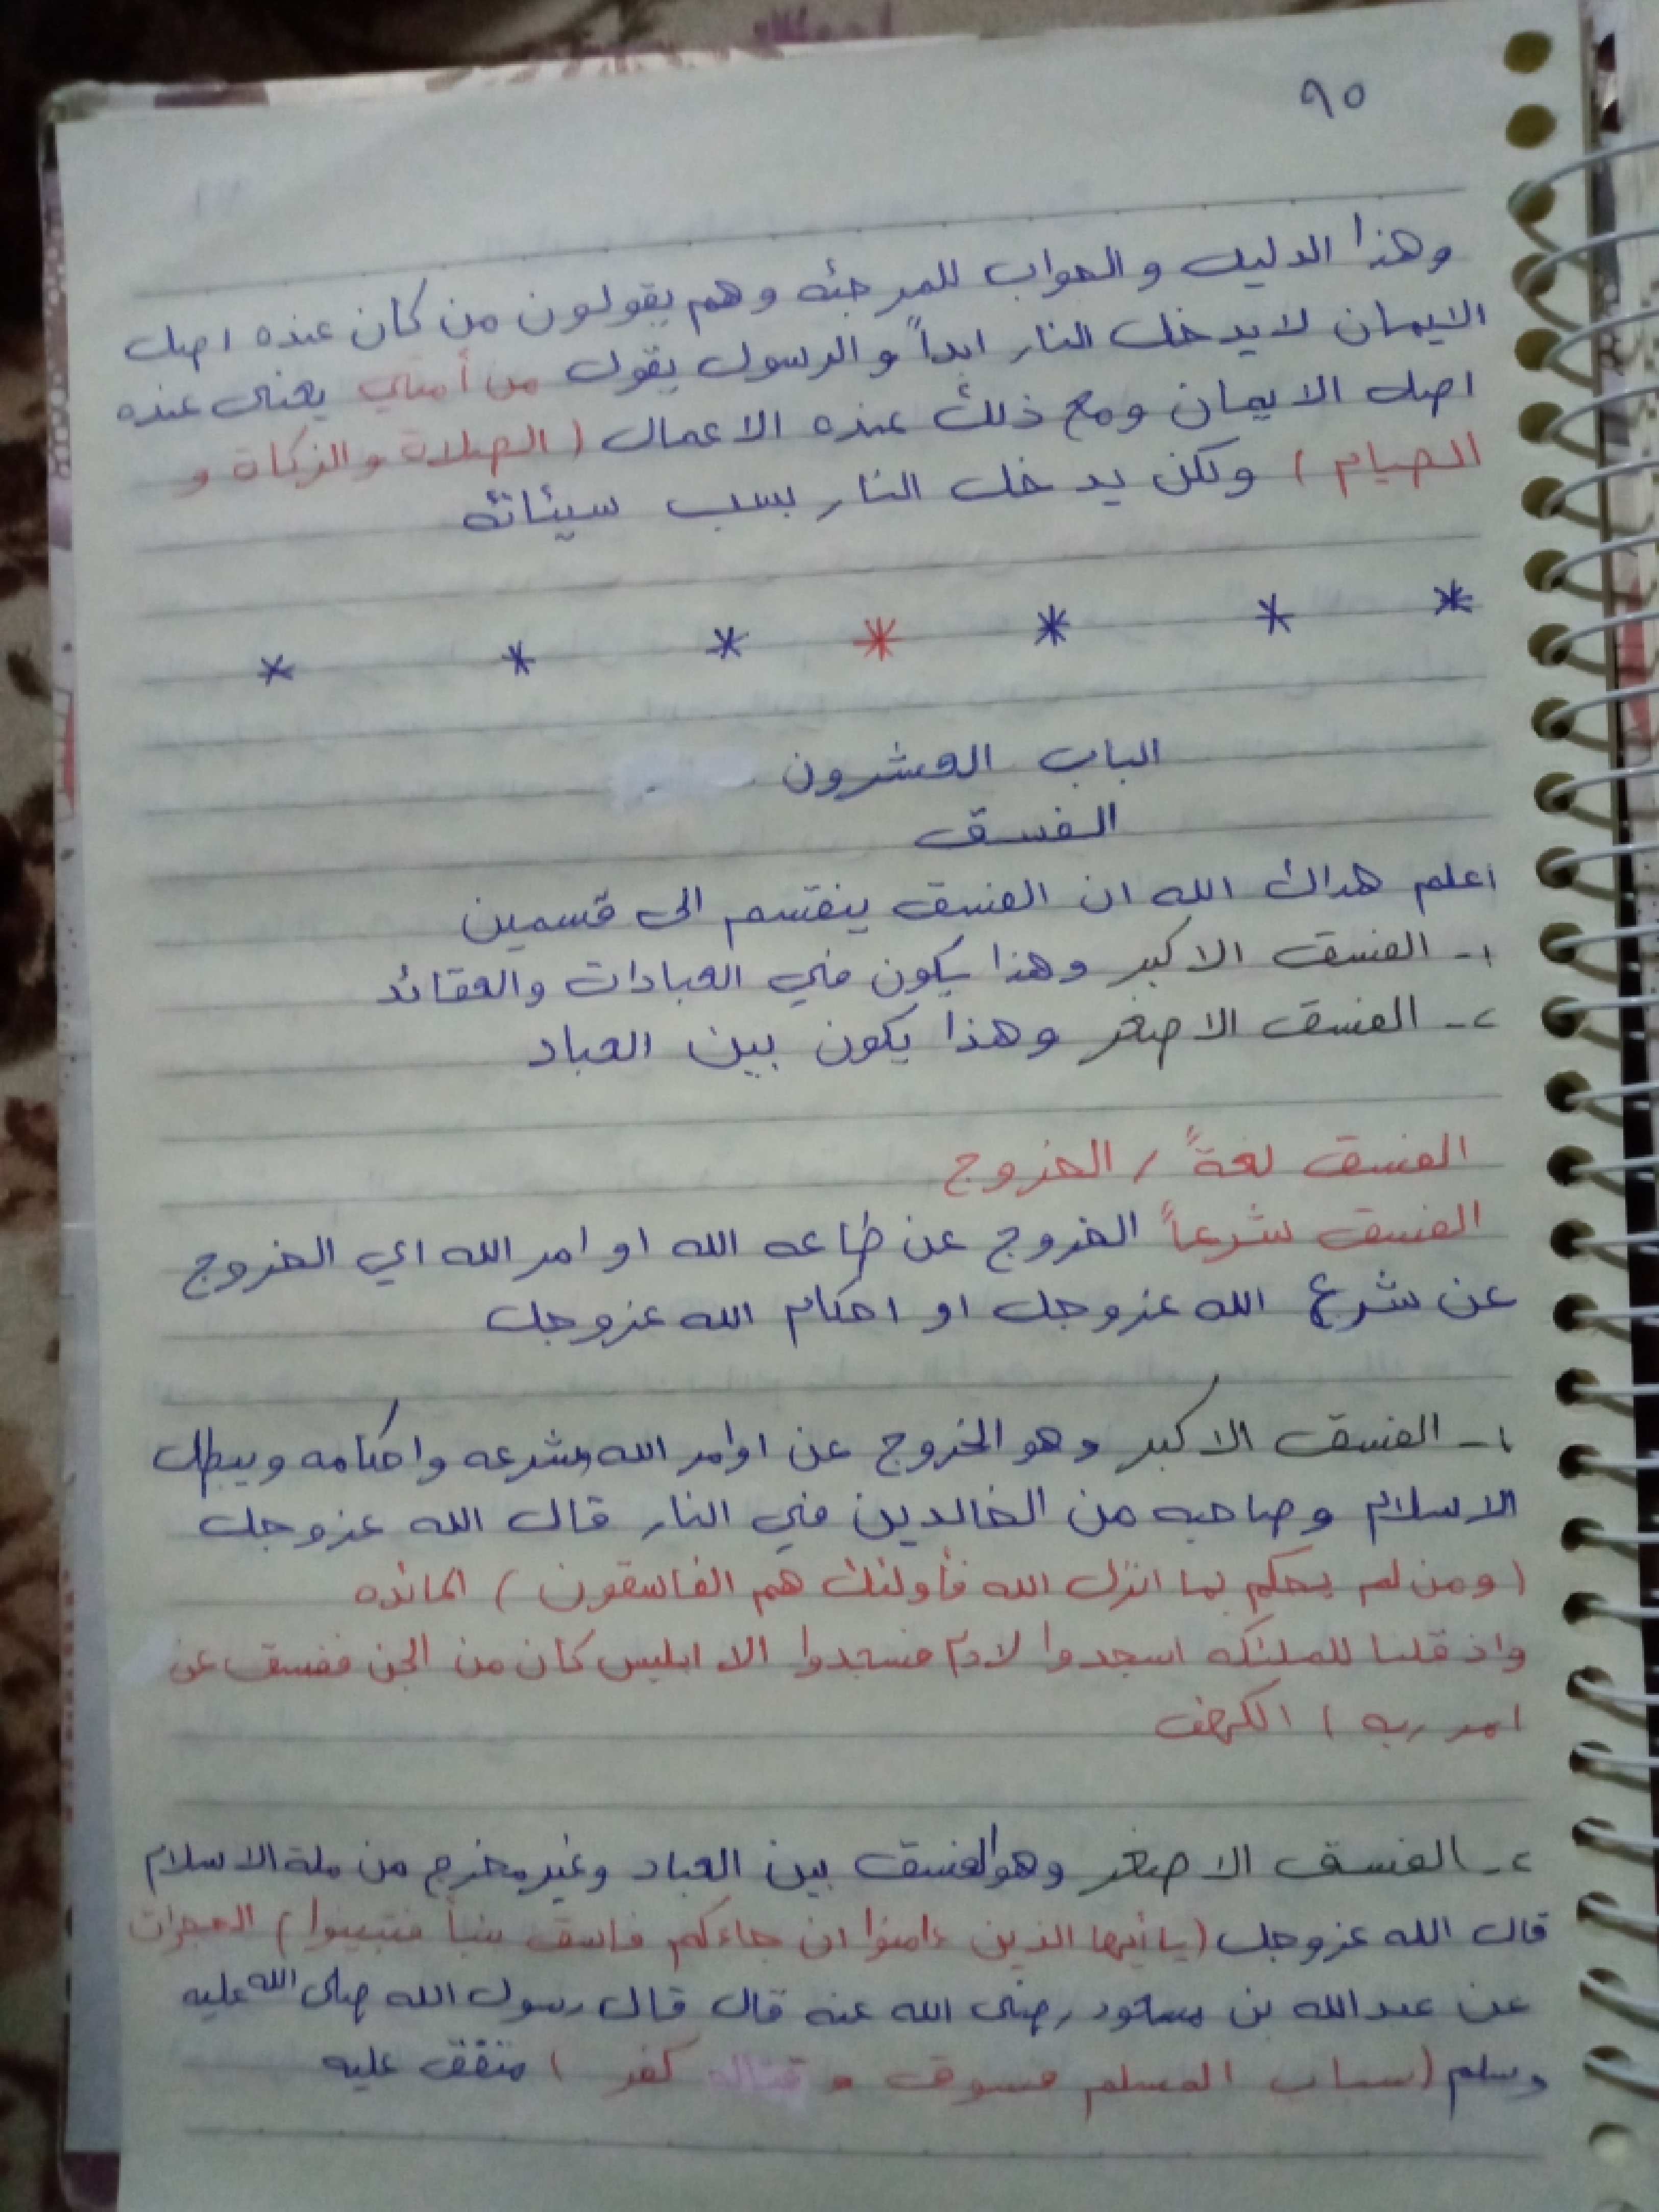 ٩٥
وهذا الدليل والجواب للمرجئه وهم يقولون من كان عنده اصل
الايمان لا يدخل النار ابداً والرسول يقول من أمتي يعني عنده
اصل الايمان ومع ذلك عنده الاعمال (الصلاة والزكاة و
الصيام) ولكن يدخل النار بسبب سيئاته
* * * * * * *
الباب العشرون
الفسق
اعلم هداك الله ان الفسق ينقسم الى قسمين
١- الفسق الاكبر وهذا يكون في العبادات والعقائد
٢- الفسق الاصغر وهذا يكون بين العباد
الفسق لغةً / الخروج
الفسق شرعاً الخروج عن طاعه الله او امر الله اي الخروج
عن شرع الله عزوجل او احكام الله عزوجل
١- الفسق الاكبر وهو الخروج عن اوامر الله وشرعه واحكامه ويبطل
الاسلام وصاحبه من الخالدين في النار قال الله عزوجل
(ومن لم يحكم بما انزل الله فأولئك هم الفاسقون) المائده
واذ قلنا للملئكه اسجدوا لادم فسجدوا الا ابليس كان من الجن ففسق عن
امر ربه) الكهف
٢- الفسق الاصغر وهو الفسق بين العباد وغير مخرج من ملة الاسلام
قال الله عزوجل (يا أيها الذين ءامنوا ان جاءكم فاسق بنبأ فتبينوا) الحجرات
عن عبد الله بن مسعود رضى الله عنه قال قال رسول الله صلى الله عليه
وسلم (سباب المسلم فسوق و قتاله كفر) متفق عليه